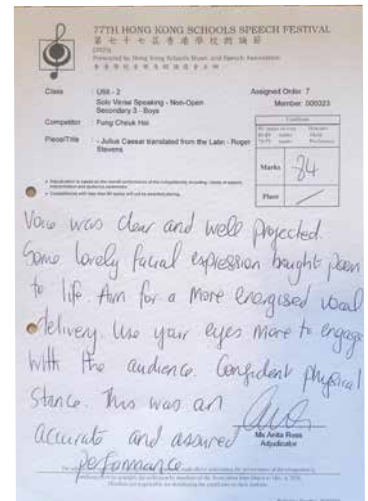 77TH HONG KONG SCHOOLS SPEECH FESTIVAL
第七十七屆香港學校朗誦節
(2025)
Presented by Hong Kong Schools Music and Speech Association
Class : U56 - 2 Assigned Order: 7
Solo Verse Speaking - Non-Open Member: 000023
Secondary 3 - Boys
Competitor : Fung Cheuk Hei
Piece/Title : - Julius Caesar translated from the Latin - Roger
Stevens
Certificate
Marks 84
Place
Voice was clear and well projected.
Some lovely facial expression bought poem
to life. Aim for a more energised vocal
delivery. Use your eyes more to engage
with the audience. Confident physical
stance. This was an
accurate and assured
performance
Ms Anita Ross
Adjudicator